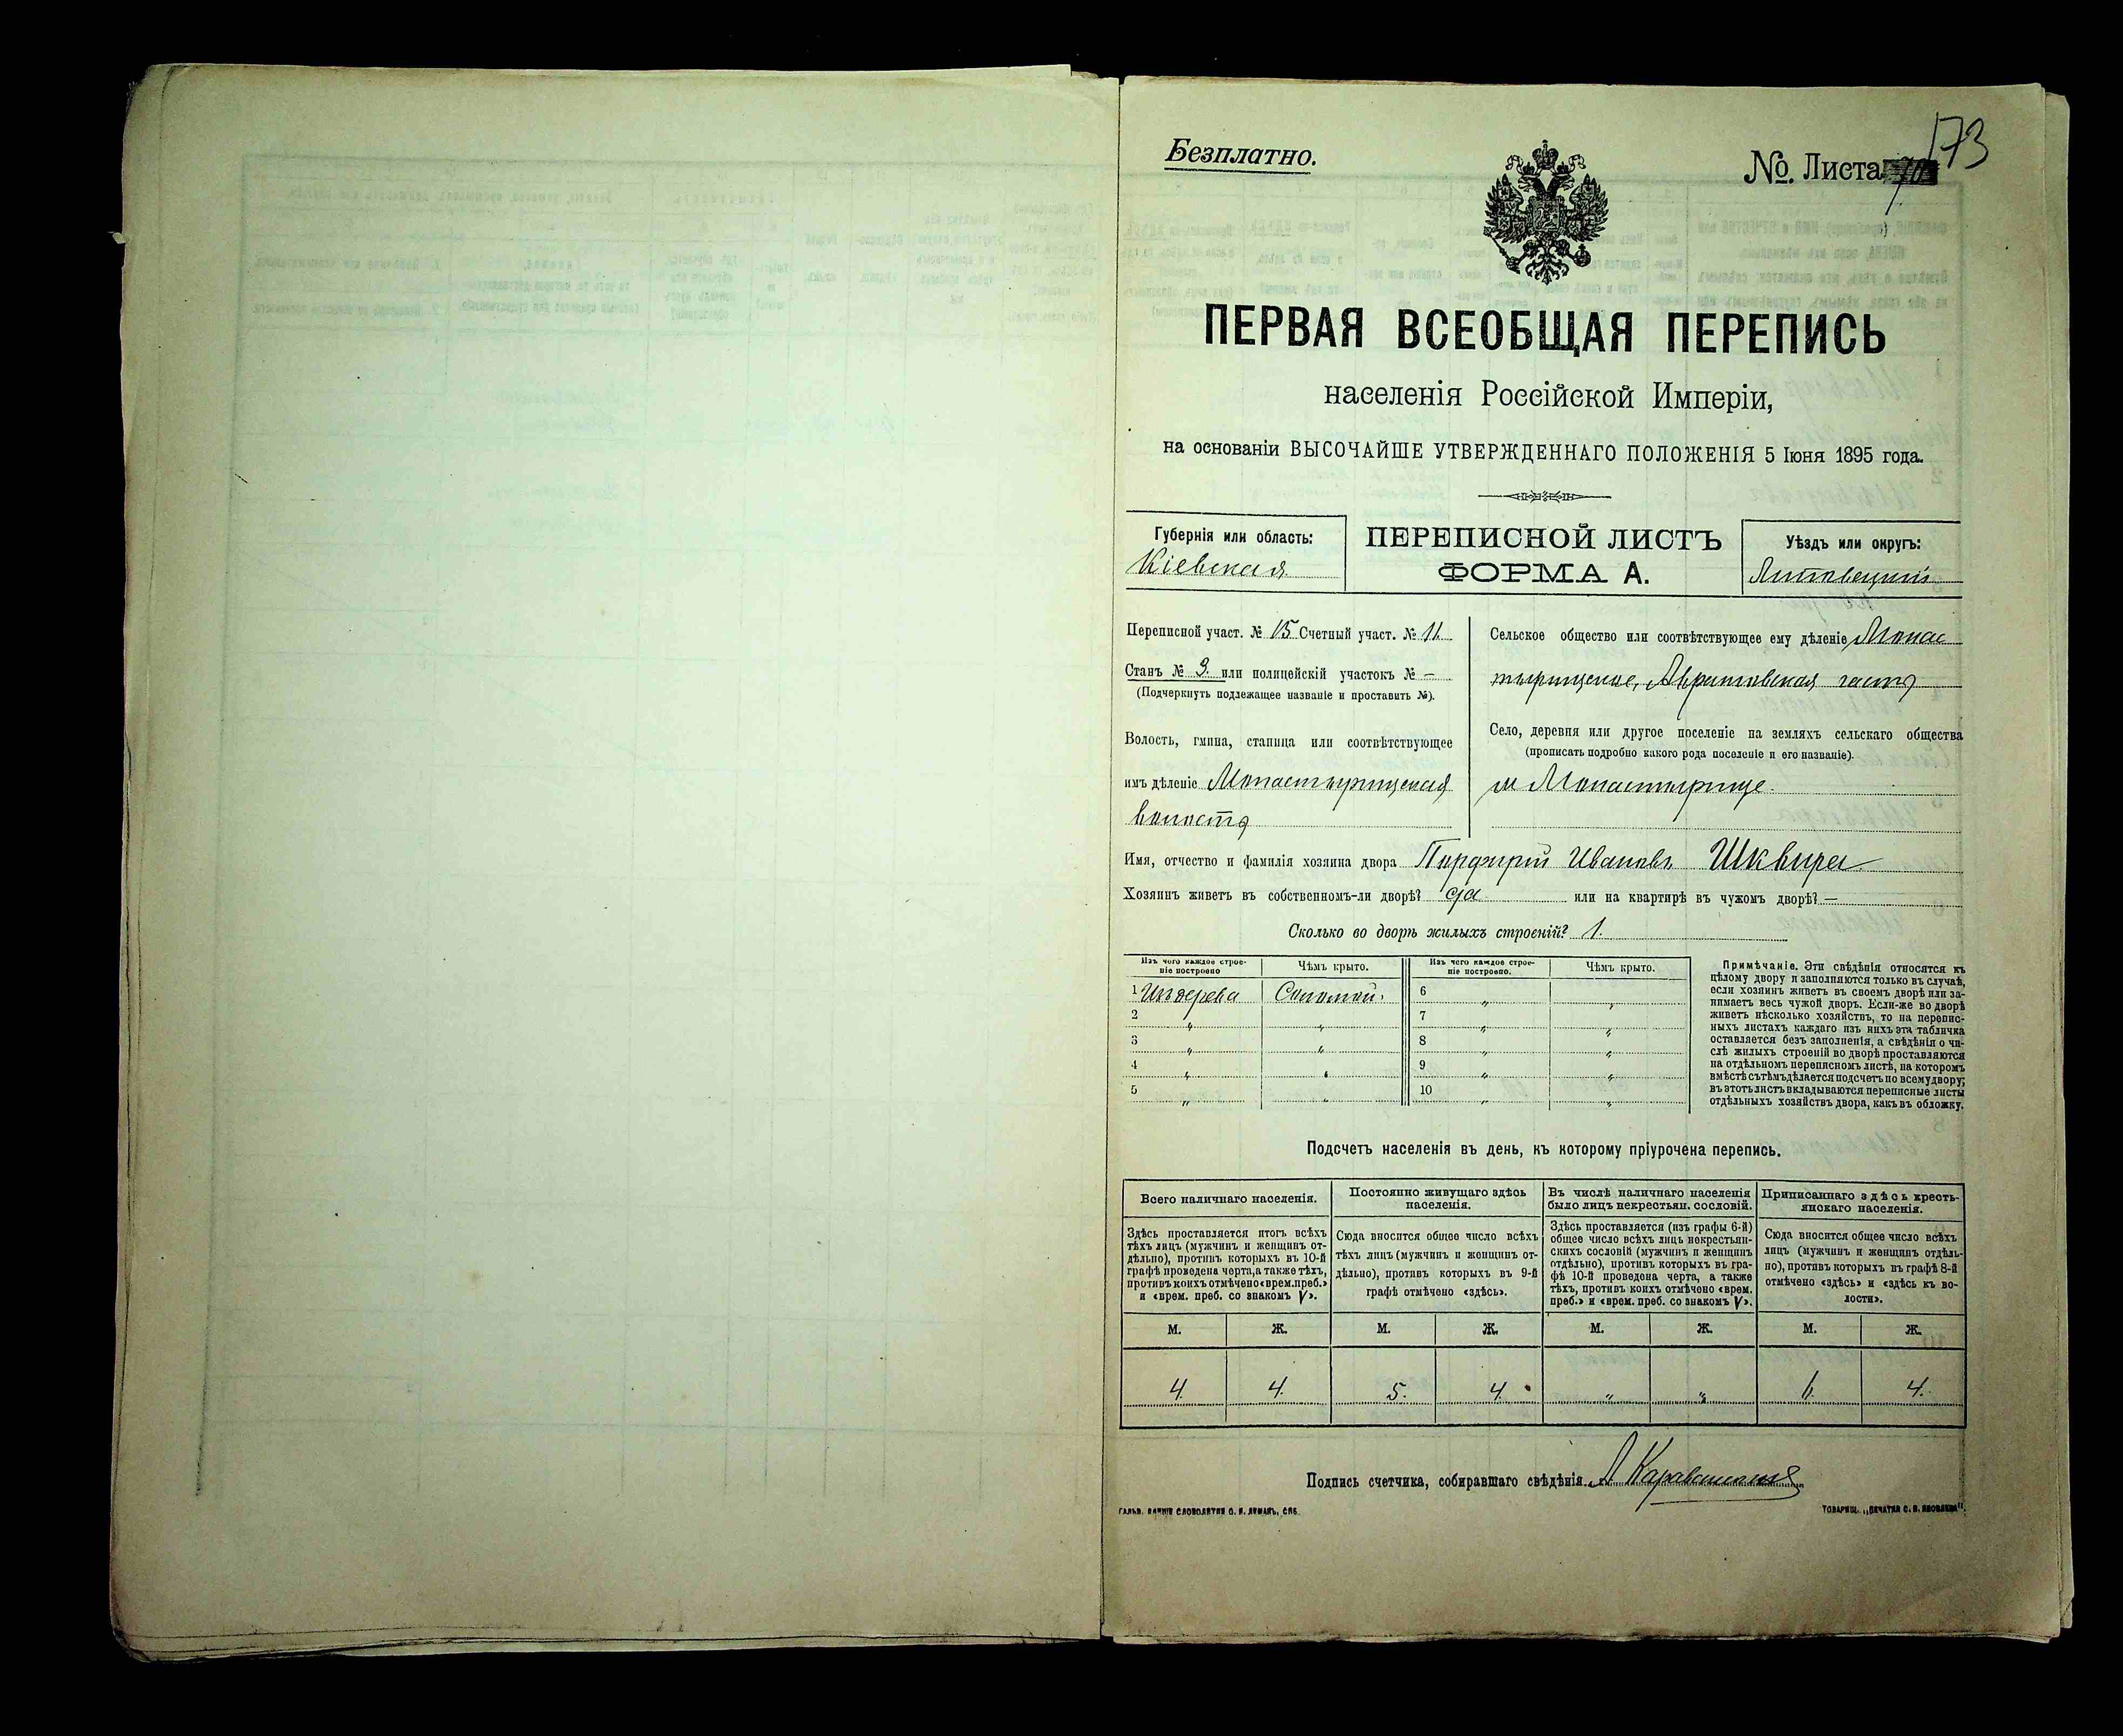 Безплатно.
№. Листа 173
ПЕРВАЯ ВСЕОБЩАЯ ПЕРЕПИСЬ
населенія Россійской Имперіи,
на основаніи ВЫСОЧАЙШЕ УТВЕРЖДЕННАГО ПОЛОЖЕНІЯ 5 Іюня 1895 года.
Губернія или область:
Кіевская
ПЕРЕПИСНОЙ ЛИСТЪ
ФОРМА А.
Уѣздъ или округъ:
Липовецкій
Переписной участ. № 15 Счетный участ. № 11.
Станъ № 3. или полицейскій участокъ № —
(Подчеркнуть подлежащее названіе и проставить №).
Волость, гмина, станица или соотвѣтствующее
имъ дѣленіе Монастырищская
волость
Сельское общество или соотвѣтствующее ему дѣленіе Монас
тырищское, Авратовская часть
Село, деревня или другое поселеніе на земляхъ сельскаго общества
(прописать подробно какого рода поселеніе и его названіе).
м Монастырище.
Имя, отчество и фамилія хозяина двора Порфирій Ивановъ Шквира
Хозяинъ живетъ въ собственномъ-ли дворѣ? да или на квартирѣ въ чужомъ дворѣ? —
Сколько во дворѣ жилыхъ строеній? 1.
Изъ чего каждое строе-
ніе построено
Чѣмъ крыто.
Изъ чего каждое строе-
ніе построено.
Чѣмъ крыто.
1 Изъ дерева Соломой. 6 „ „
2 „ „ 7 „ „
3 „ „ 8 „ „
4 „ „ 9 „ „
5 „ „ 10 „ „
Примѣчаніе. Эти свѣдѣнія относятся къ
цѣлому двору и заполняются только въ случаѣ,
если хозяинъ живетъ въ своемъ дворѣ или за-
нимаетъ весь чужой дворъ. Если-же во дворѣ
живетъ нѣсколько хозяйствъ, то на перепис-
ныхъ листахъ каждаго изъ нихъ эта табличка
оставляется безъ заполненія, а свѣдѣнія о чи-
слѣ жилыхъ строеній во дворѣ проставляются
на отдѣльномъ переписномъ листѣ, на которомъ
вмѣстѣ съ тѣмъ дѣлается подсчетъ по всему двору;
въ этотъ листъ вкладываются переписные листы
отдѣльныхъ хозяйствъ двора, какъ въ обложку.
Подсчетъ населенія въ день, къ которому пріурочена перепись.
Всего наличнаго населенія.
Постоянно живущаго здѣсь
населенія.
Въ числѣ наличнаго населенія
было лицъ некрестьян. сословій.
Приписаннаго здѣсь кресть-
янскаго населенія.
Здѣсь проставляется итогъ всѣхъ
тѣхъ лицъ (мужчинъ и женщинъ от-
дѣльно), противъ которыхъ въ 10-й
графѣ проведена черта, а также тѣхъ,
противъ коихъ отмѣчено «врем. преб.»
и «врем. преб. со знакомъ V».
Сюда вносится общее число всѣхъ
тѣхъ лицъ (мужчинъ и женщинъ от-
дѣльно), противъ которыхъ въ 9-й
графѣ отмѣчено «здѣсь».
Здѣсь проставляется (изъ графы 6-й)
общее число всѣхъ лицъ некрестьян-
скихъ сословій (мужчинъ и женщинъ
отдѣльно), противъ которыхъ въ гра-
фѣ 10-й проведена черта, а также
тѣхъ, противъ коихъ отмѣчено «врем.
преб.» и «врем. преб. со знакомъ V».
Сюда вносится общее число всѣхъ
лицъ (мужчинъ и женщинъ отдѣль-
но), противъ которыхъ въ графѣ 8-й
отмѣчено «здѣсь» и «здѣсь къ во-
лости».
М. Ж. М. Ж. М. Ж. М. Ж.
4. 4. 5. 4. „ „ 6. 4.
Подпись счетчика, собиравшаго свѣдѣнія
ТОВАРИЩ. „ПЕЧАТНЯ С. П. ЯКОВЛЕВА".